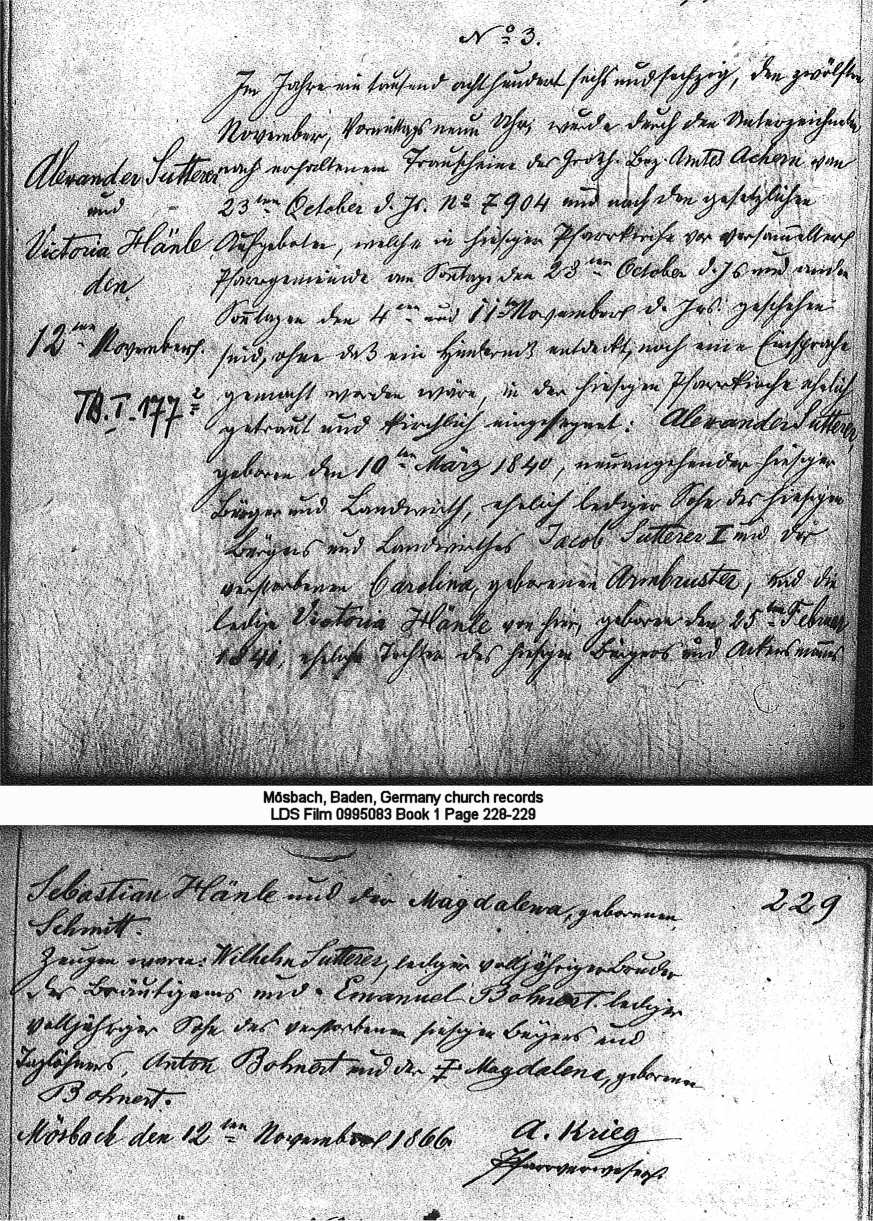 No 3.
Im Jahre ein tausend acht hundert sechs und sechzig, den zwölften
November, Vormittags neun Uhr, wurde durch den Unterzeichneten
nach erhaltenem Trauscheine des Großh. Bez. Amtes Achern vom
23ten October d. Js. No 7904 und nach den gesetzlichen
Aufgeboten, welche in hiesiger Pfarrkirche vor versammelter
Pfarrgemeinde am Sonntage den 28ten October d. Js und an den
Sonntagen den 4ten und 11ten November d. Jrs. geschehen
sind, ohne daß ein Hinderniß entdeckt, noch eine Einsprache
gemacht worden wäre, in der hiesigen Pfarrkirche ehelich
getraut und kirchlich eingesegnet: Alexander Sutterer,
geboren den 10ten März 1840, neuangehender hiesiger
Bürger und Landwirth, ehelich lediger Sohn des hiesigen
Bürgers und Landwirthes Jacob Sutterer I und der
verstorbenen Carolina, geborenen Armbruster, und die
ledige Victoria Hänle von hier, geboren den 25ten Februar
1841, eheliche Tochter des hiesigen Bürgers und Ackersmanns
Alexander Sutterer
und
Victoria Hänle
den
12ten November.
TB. I. 177 2
Mösbach, Baden, Germany church records
LDS Film 0995083 Book 1 Page 228-229
229
Sebastian Hänle und der Magdalena, geborenen
Schmitt.
Zeugen waren: Wilhelm Sutterer, lediger volljähriger Bruder
des Bräutigams und Emanuel Bohnert lediger
volljähriger Sohn des verstorbenen hiesigen Bürgers und
Taglöhners, Anton Bohnert und der † Magdalena, geborenen
Bohnert.
Mösbach den 12ten November 1866.
A. Krieg
Pfarrverweser.